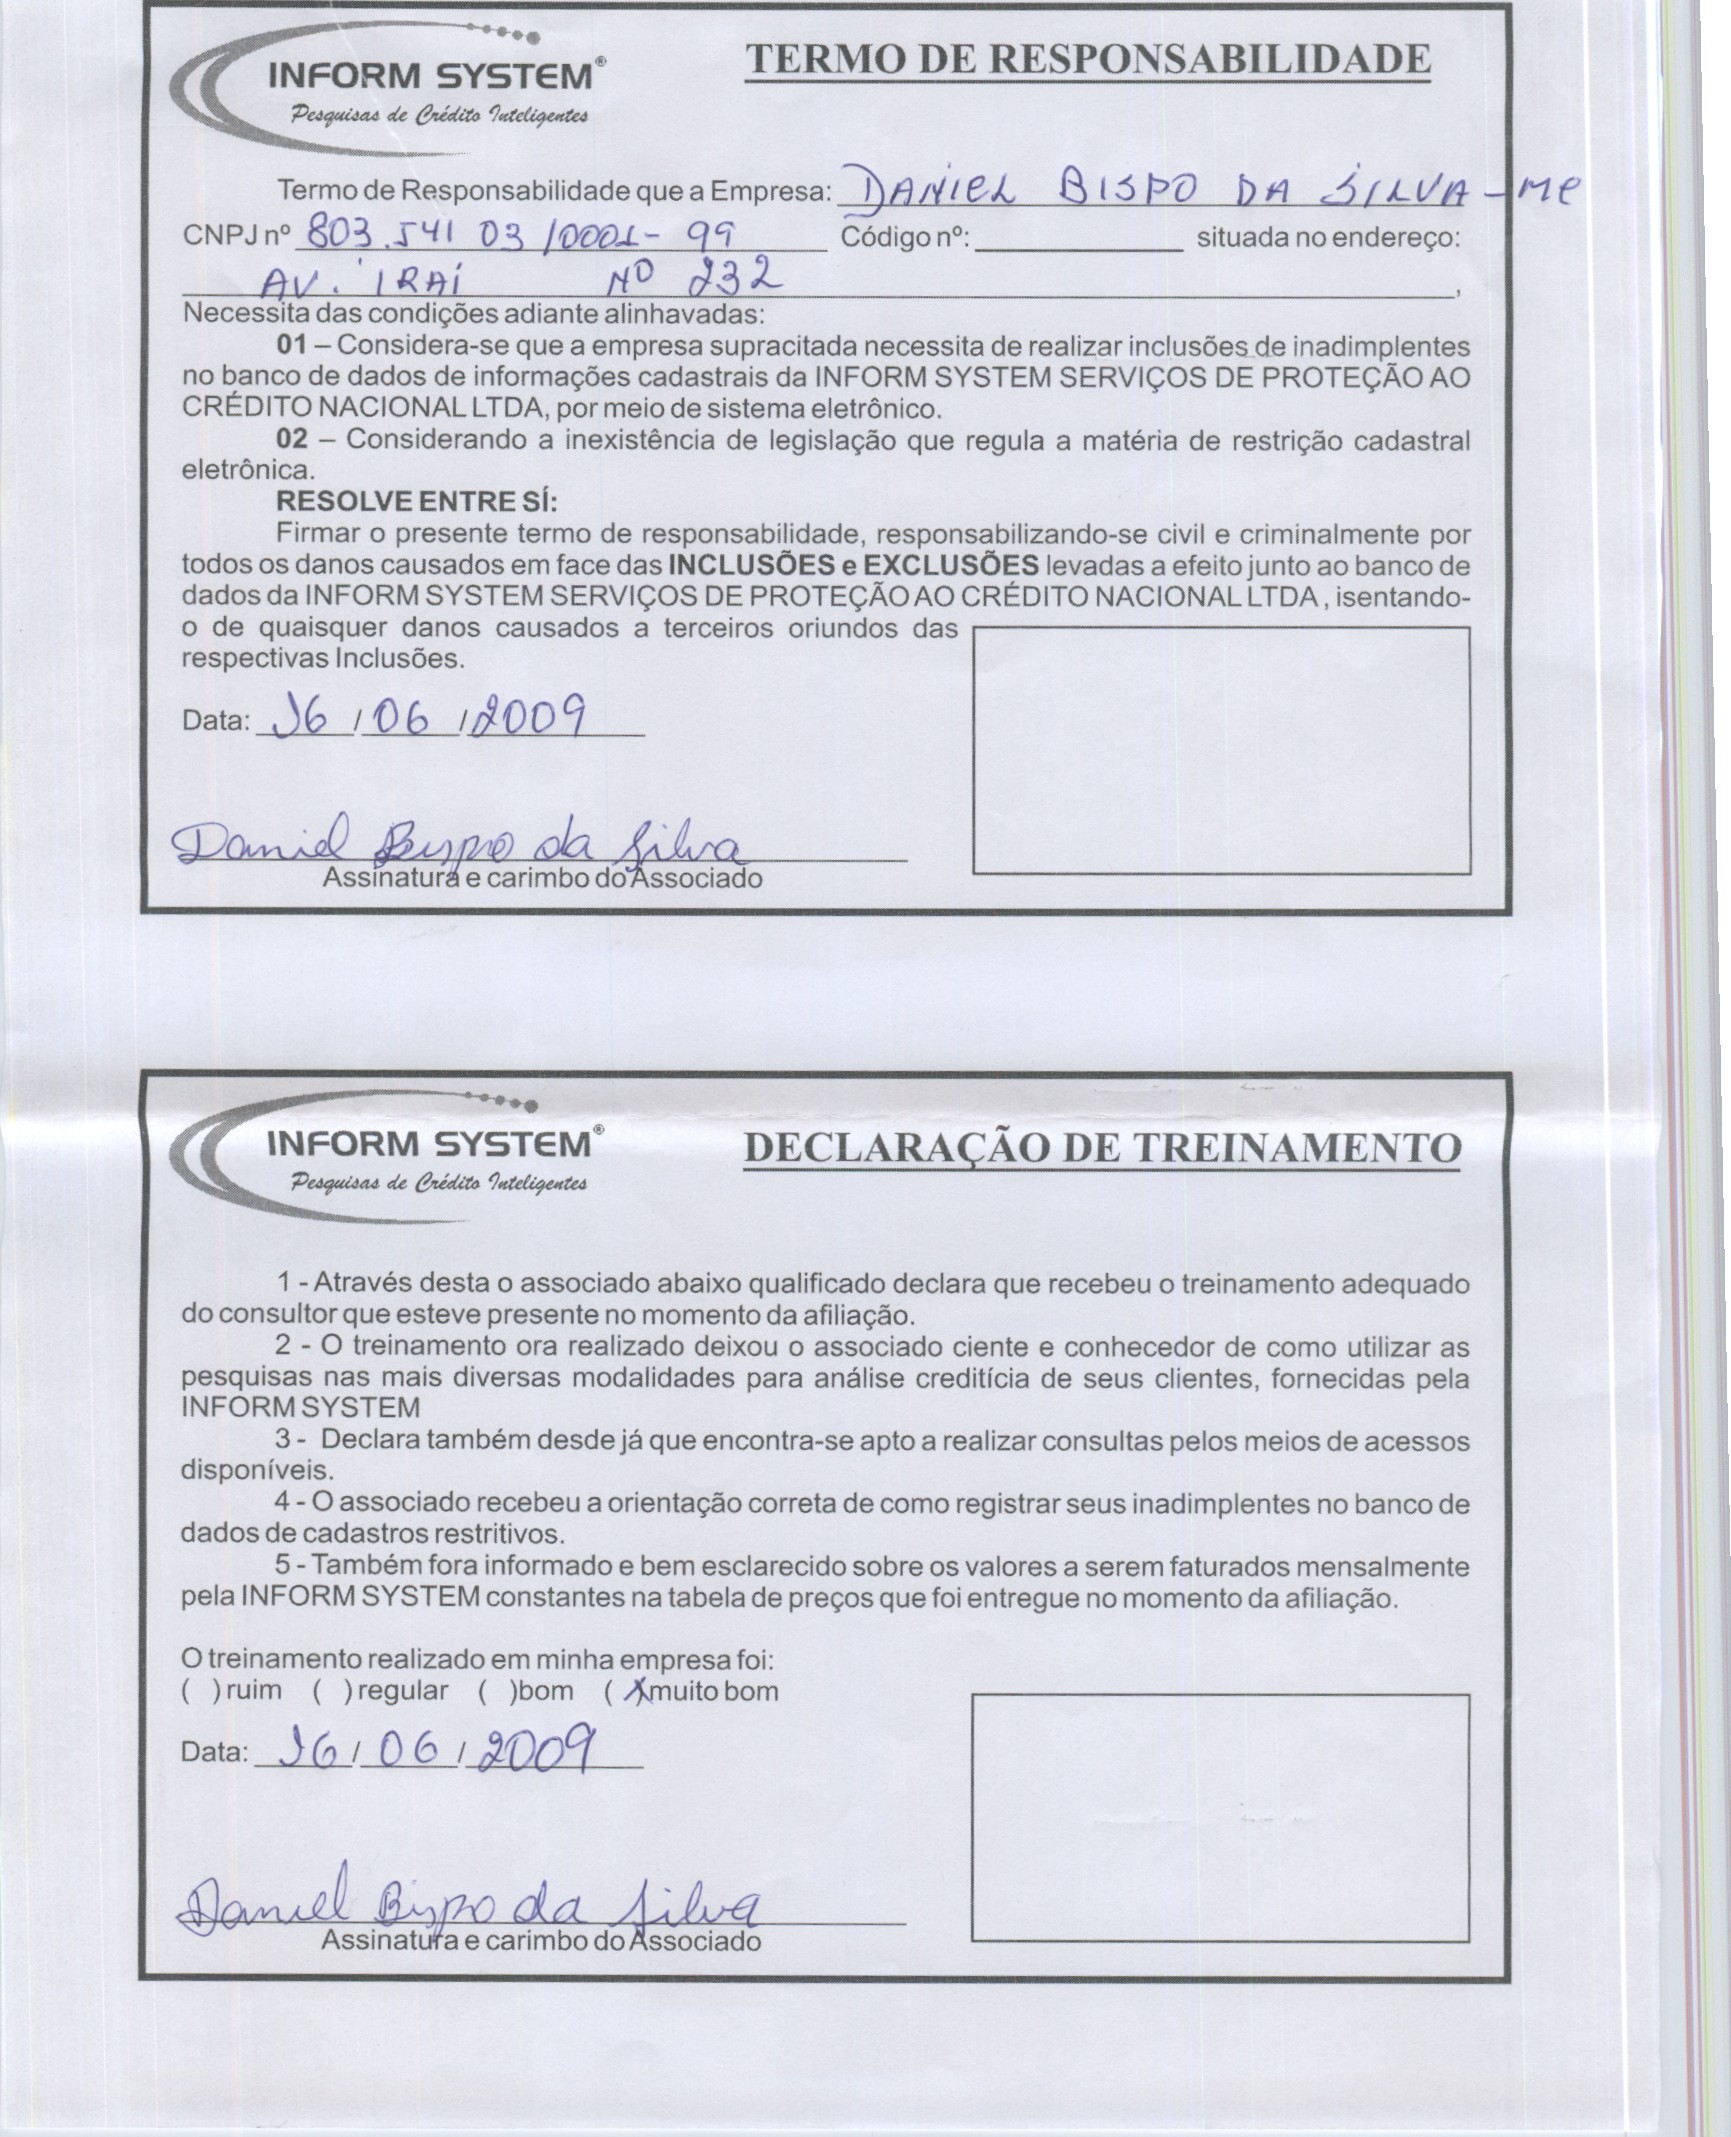 INFORM SYSTEM®
Pesquisas de Crédito Inteligentes
TERMO DE RESPONSABILIDADE
Termo de Responsabilidade que a Empresa: DANIEL BISPO DA SILVA-ME
CNPJ nº 803.541 03/0001-99 Código nº: situada no endereço:
AV. IRAÍ Nº 232 ,
Necessita das condições adiante alinhavadas:
01 – Considera-se que a empresa supracitada necessita de realizar inclusões de inadimplentes
no banco de dados de informações cadastrais da INFORM SYSTEM SERVIÇOS DE PROTEÇÃO AO
CRÉDITO NACIONAL LTDA, por meio de sistema eletrônico.
02 – Considerando a inexistência de legislação que regula a matéria de restrição cadastral
eletrônica.
RESOLVE ENTRE SÍ:
Firmar o presente termo de responsabilidade, responsabilizando-se civil e criminalmente por
todos os danos causados em face das INCLUSÕES e EXCLUSÕES levadas a efeito junto ao banco de
dados da INFORM SYSTEM SERVIÇOS DE PROTEÇÃO AO CRÉDITO NACIONAL LTDA, isentando-
o de quaisquer danos causados a terceiros oriundos das
respectivas Inclusões.
Data: 16 / 06 / 2009
Daniel Bispo da Silva
Assinatura e carimbo do Associado
INFORM SYSTEM®
Pesquisas de Crédito Inteligentes
DECLARAÇÃO DE TREINAMENTO
1 - Através desta o associado abaixo qualificado declara que recebeu o treinamento adequado
do consultor que esteve presente no momento da afiliação.
2 - O treinamento ora realizado deixou o associado ciente e conhecedor de como utilizar as
pesquisas nas mais diversas modalidades para análise creditícia de seus clientes, fornecidas pela
INFORM SYSTEM
3 - Declara também desde já que encontra-se apto a realizar consultas pelos meios de acessos
disponíveis.
4 - O associado recebeu a orientação correta de como registrar seus inadimplentes no banco de
dados de cadastros restritivos.
5 - Também fora informado e bem esclarecido sobre os valores a serem faturados mensalmente
pela INFORM SYSTEM constantes na tabela de preços que foi entregue no momento da afiliação.
O treinamento realizado em minha empresa foi:
( ) ruim ( ) regular ( ) bom (X) muito bom
Data: 16 / 06 / 2009
Daniel Bispo da Silva
Assinatura e carimbo do Associado